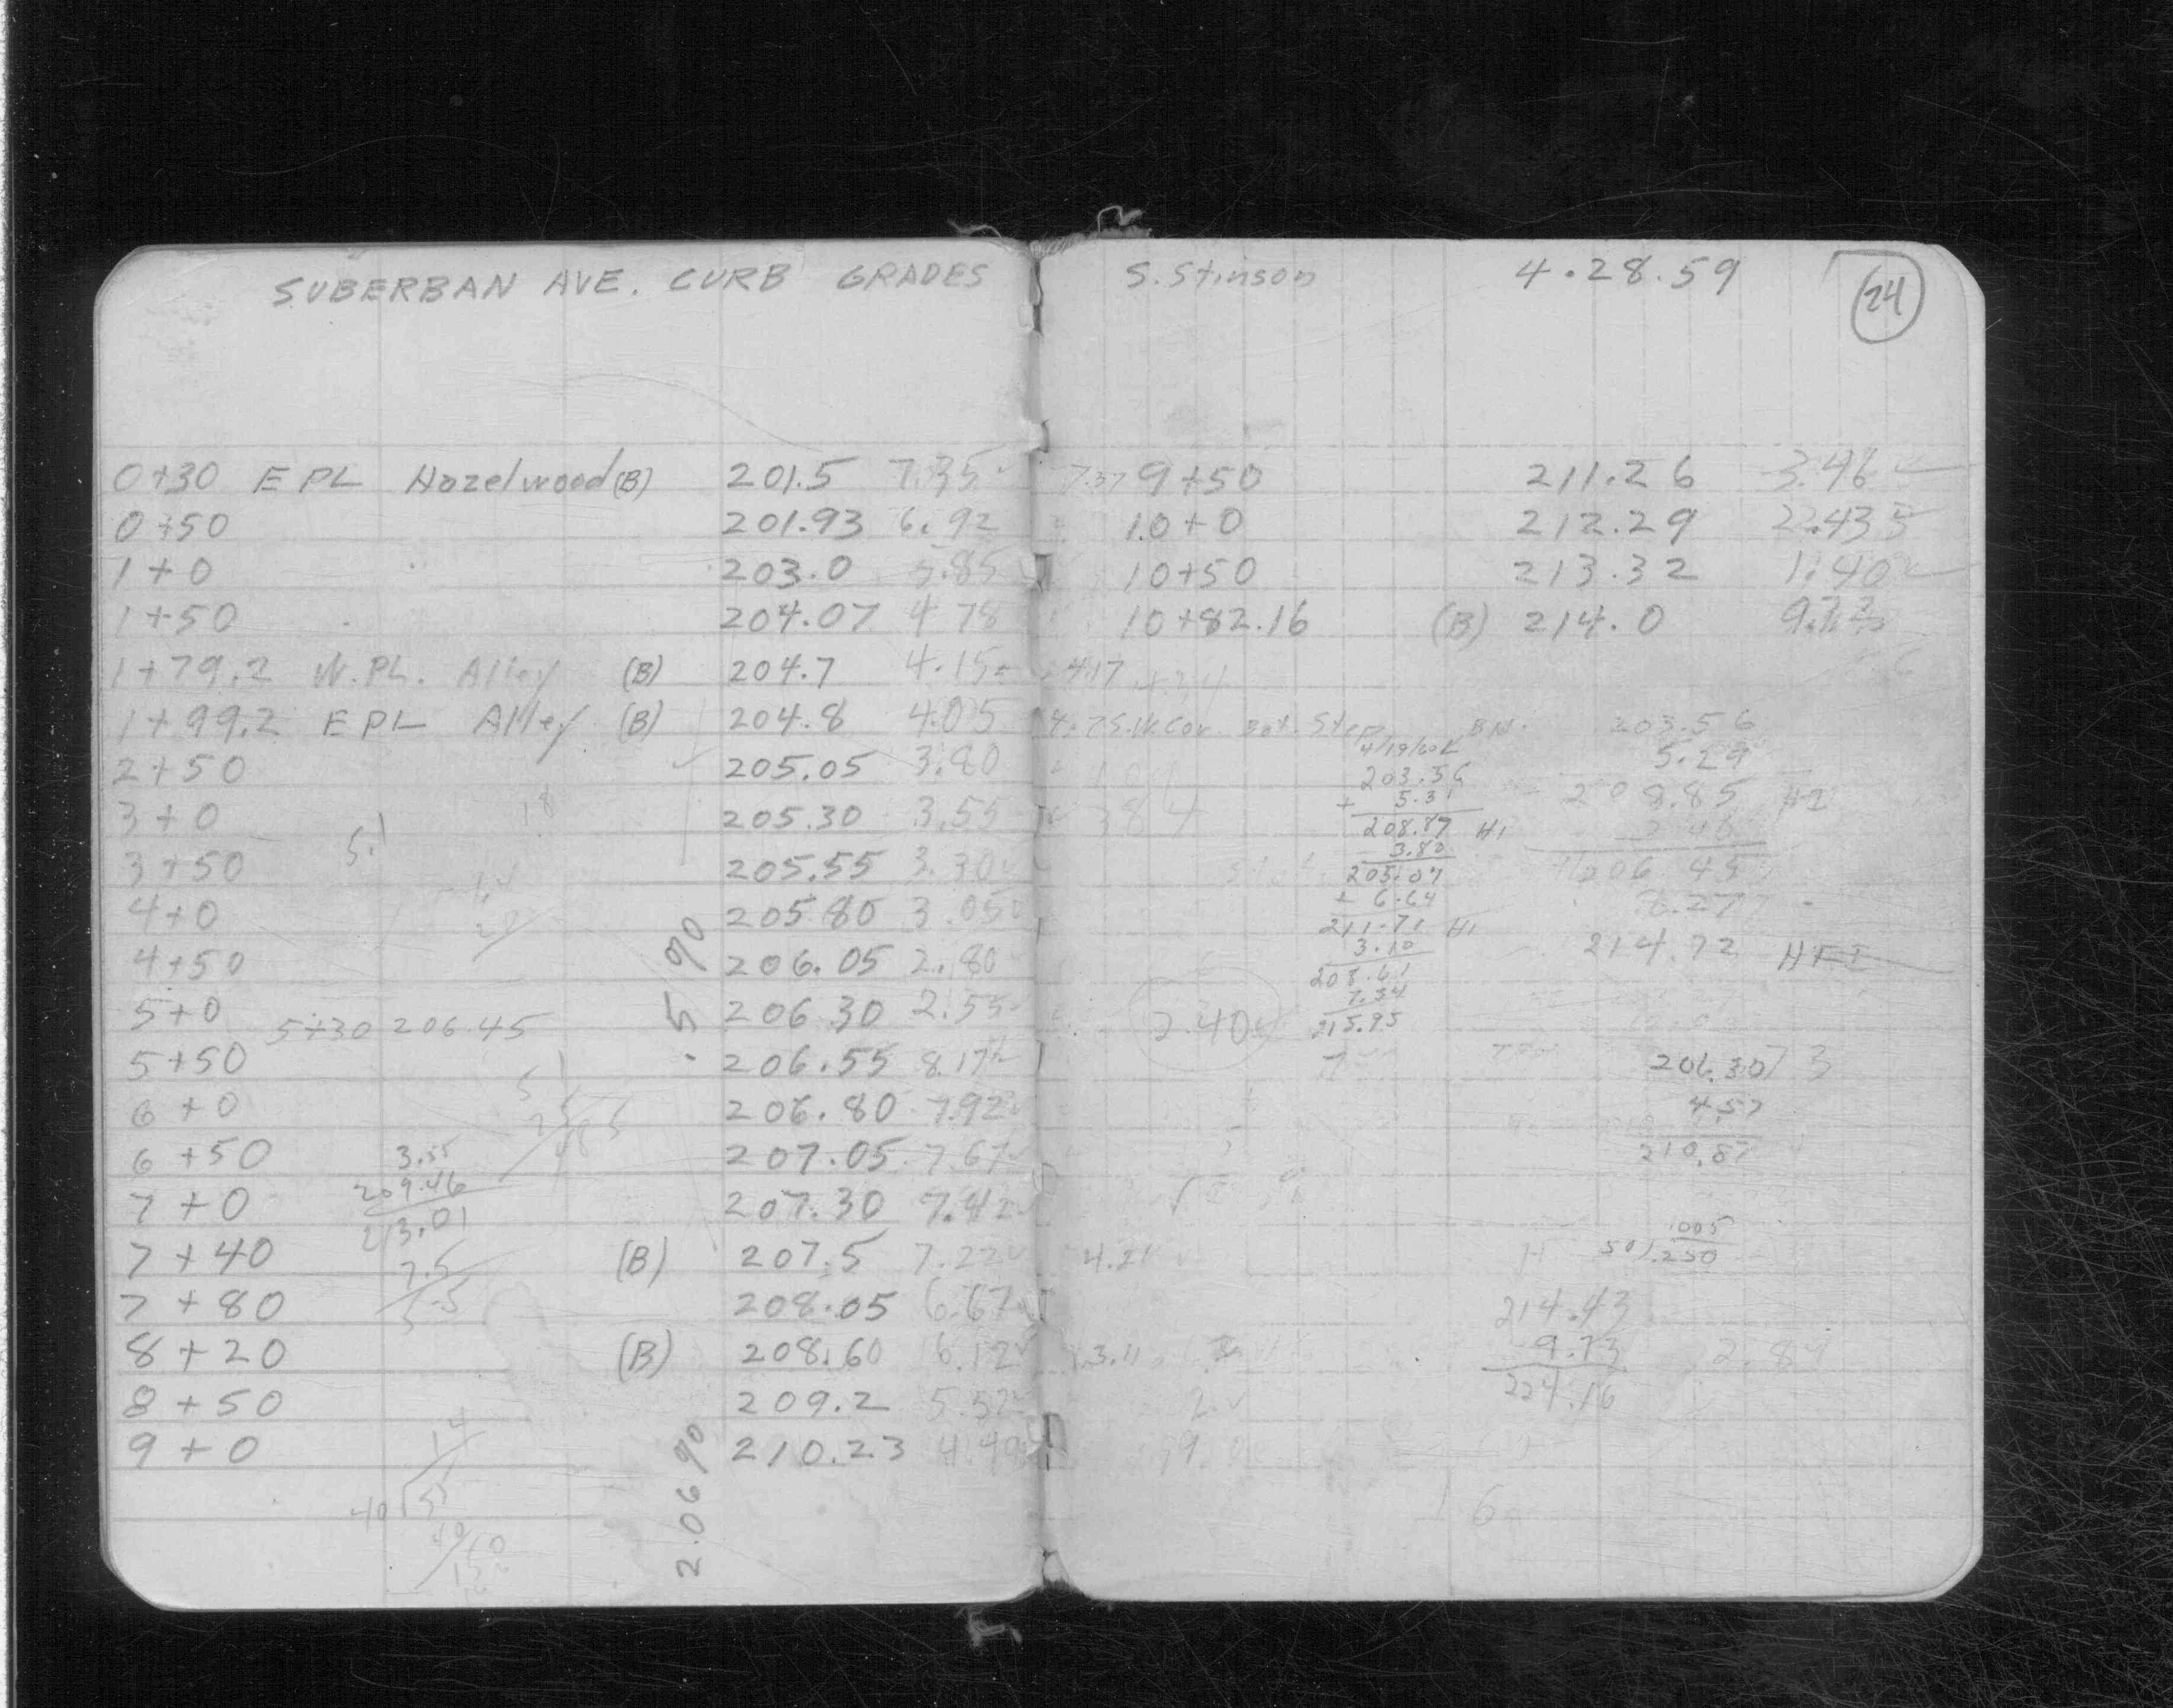 SUBERBAN AVE. CURB GRADES
0+30 EPL Hazelwood (B) 201.5 7.35
0+50 201.93 6.92
1+0 203.0 5.85
1+50 204.07 4.78
1+79.2 W.PL. Alley (B) 204.7 4.15
1+99.2 EPL Alley (B) 204.8 4.05
2+50 205.05 3.80
3+0 205.30 3.55
3+50 205.55 3.30
4+0 205.80 3.05
4+50 206.05 2.80
5+0 206.30 2.55
5+30 206.45
5+50 206.55 8.17
6+0 206.80 7.92
6+50 207.05 7.67
7+0 207.30 7.42
7+40 (B) 207.5 7.22
7+80 208.05 6.67
8+20 (B) 208.60 6.12
8+50 209.2 5.52
9+0 210.23 4.49
.5 %
2.06 %
3.55
209.46
213.01
7.5
5.5
S. Stinson 4.28.59
24
7.37 9+50 211.26 3.46
10+0 212.29 2.43
10+50 213.32 1.40
10+82.16 (B) 214.0
4.17
Bot. Step
4/19/60
203.56
+ 5.31
208.87 HI
3.80
205.07
+ 6.64
211.71 HI
3.10
208.61
7.34
215.95
B.M. 203.56
5.29
208.85 HI
206.45
8.27
214.72 HI
2.40
206.30
4.57
210.87
.005
50).250
4.21
3.11
214.43
9.73
224.16